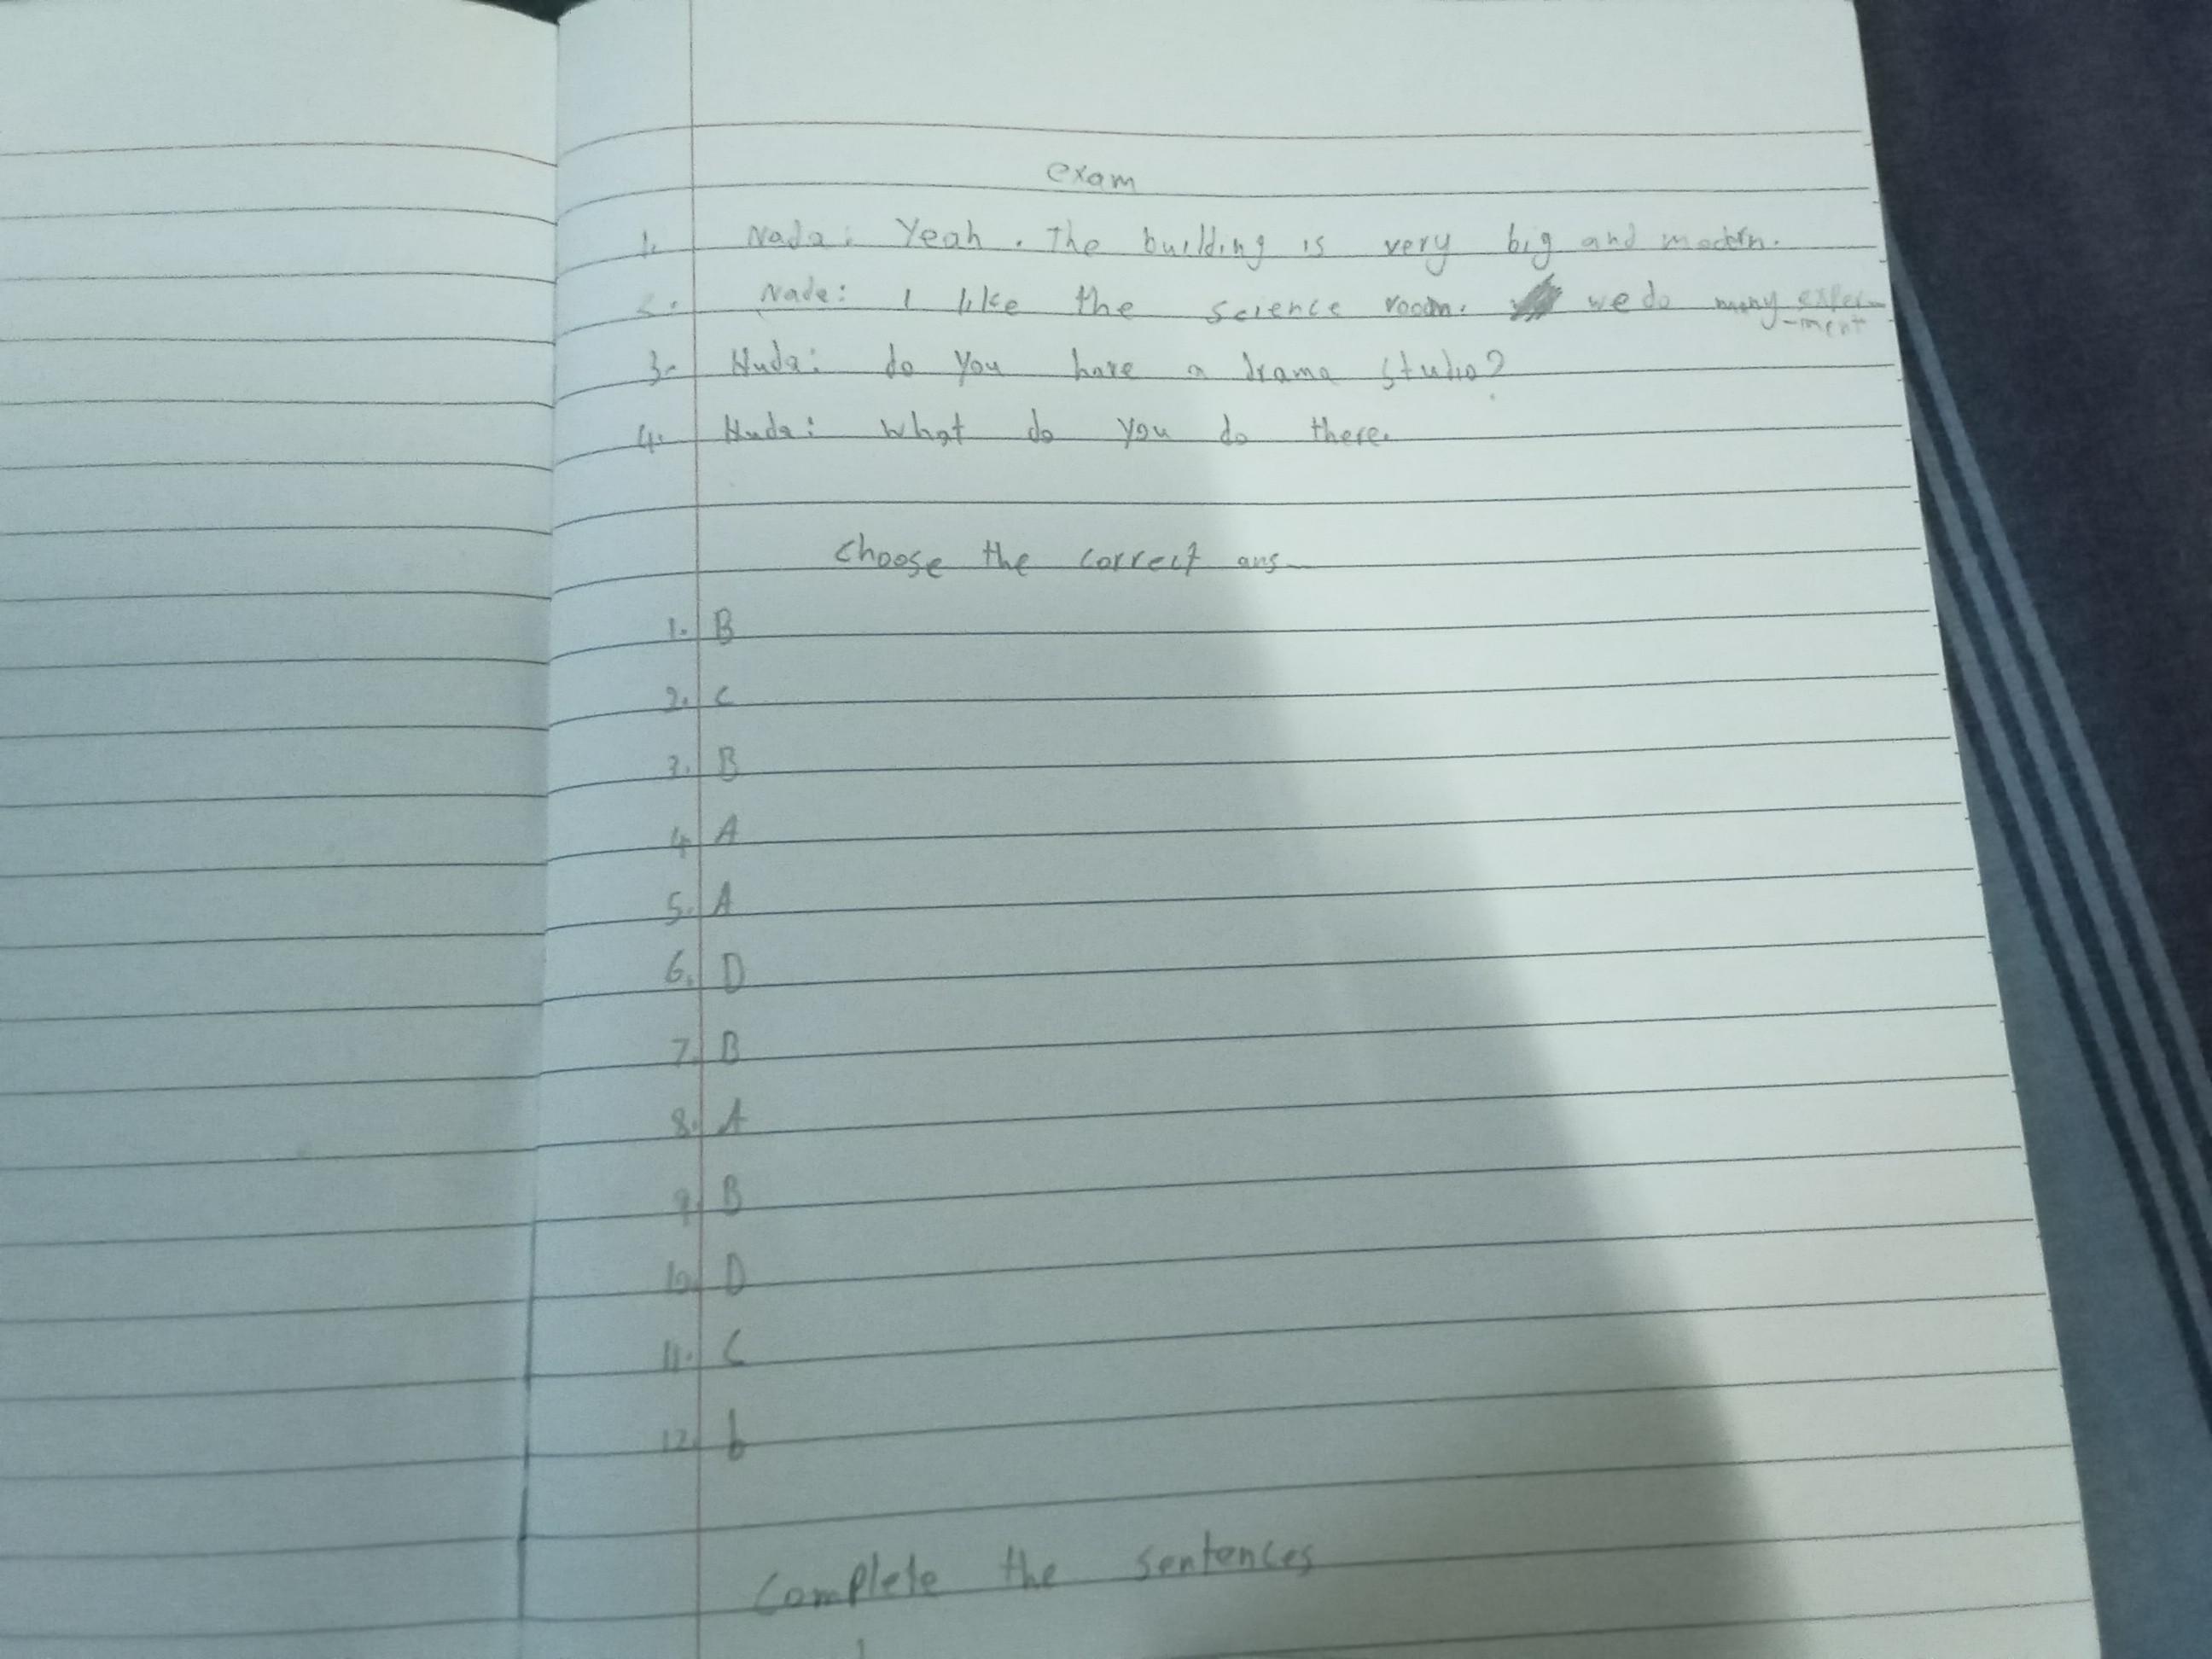 exam
1. Nada: Yeah. The building is very big and modern.
2. Nada: I like the science room. we do many exper-
-ment
3- Huda: do you have a drama studio?
4. Huda: what do you do there.
choose the correct ans
1. B
2. C
3. B
4. A
5. A
6. D
7. B
8. A
9. B
10. D
11. C
12. b
complete the sentences